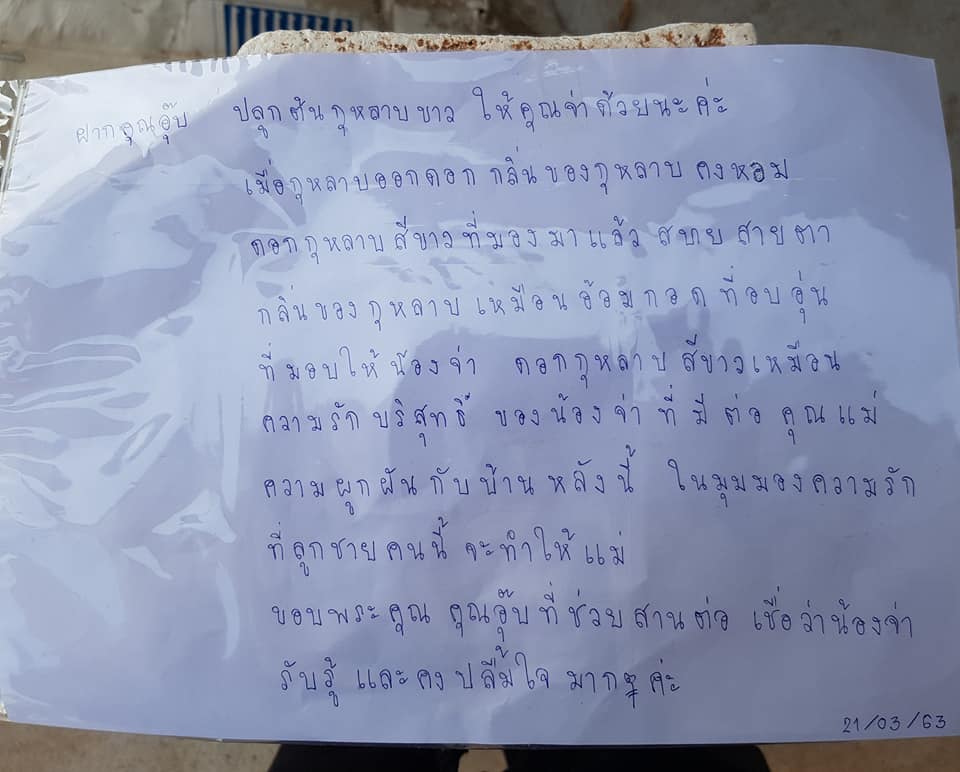 ฝากคุณอุ๊บ ปลูกต้นกุหลาบขาว ให้คุณจ่าด้วยนะค่ะ
เมื่อกุหลาบออกดอก กลิ่นของกุหลาบ คงหอม
ดอกกุหลาบสีขาวที่มองมาแล้ว สบายสายตา
กลิ่นของกุหลาบเหมือนอ้อมกอดที่อบอุ่น
ที่มอบให้น้องจ่า ดอกกุหลาบสีขาวเหมือน
ความรักบริสุทธิ์ ของน้องจ่าที่มีต่อคุณแม่
ความผูกผันกับบ้านหลังนี้ ในมุมมองความรัก
ที่ลูกชายคนนี้ จะทำให้แม่
ขอบพระคุณ คุณอุ๊บที่ช่วยสานต่อ เชื่อว่าน้องจ่า
รับรู้ และคงปลื้มใจมากๆ ค่ะ
21/03/63